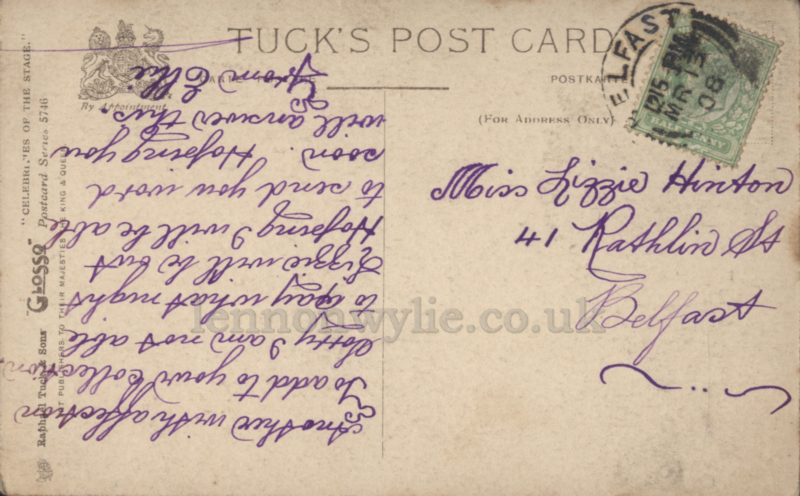 TUCK'S POST CARD
CARTE
POSTKAR
By Appointment
(For Address Only)
BELFAST
1215 PM
MR 13
08
Miss Lizzie Hinton
41 Rathlin St
Belfast
Another with affection
To add to your Collection
Sorry I am not able
to say what night
Lizzie will be out
Hoping I will be able
to send you word
soon. Hoping you
will answer this.
From Ellie
"CELEBRITIES OF THE STAGE."
"GLOSSO" Postcard Series 5746
Raphael Tuck & Sons
ART PUBLISHERS TO THEIR MAJESTIES THE KING & QUEEN
lennonwylie.co.uk